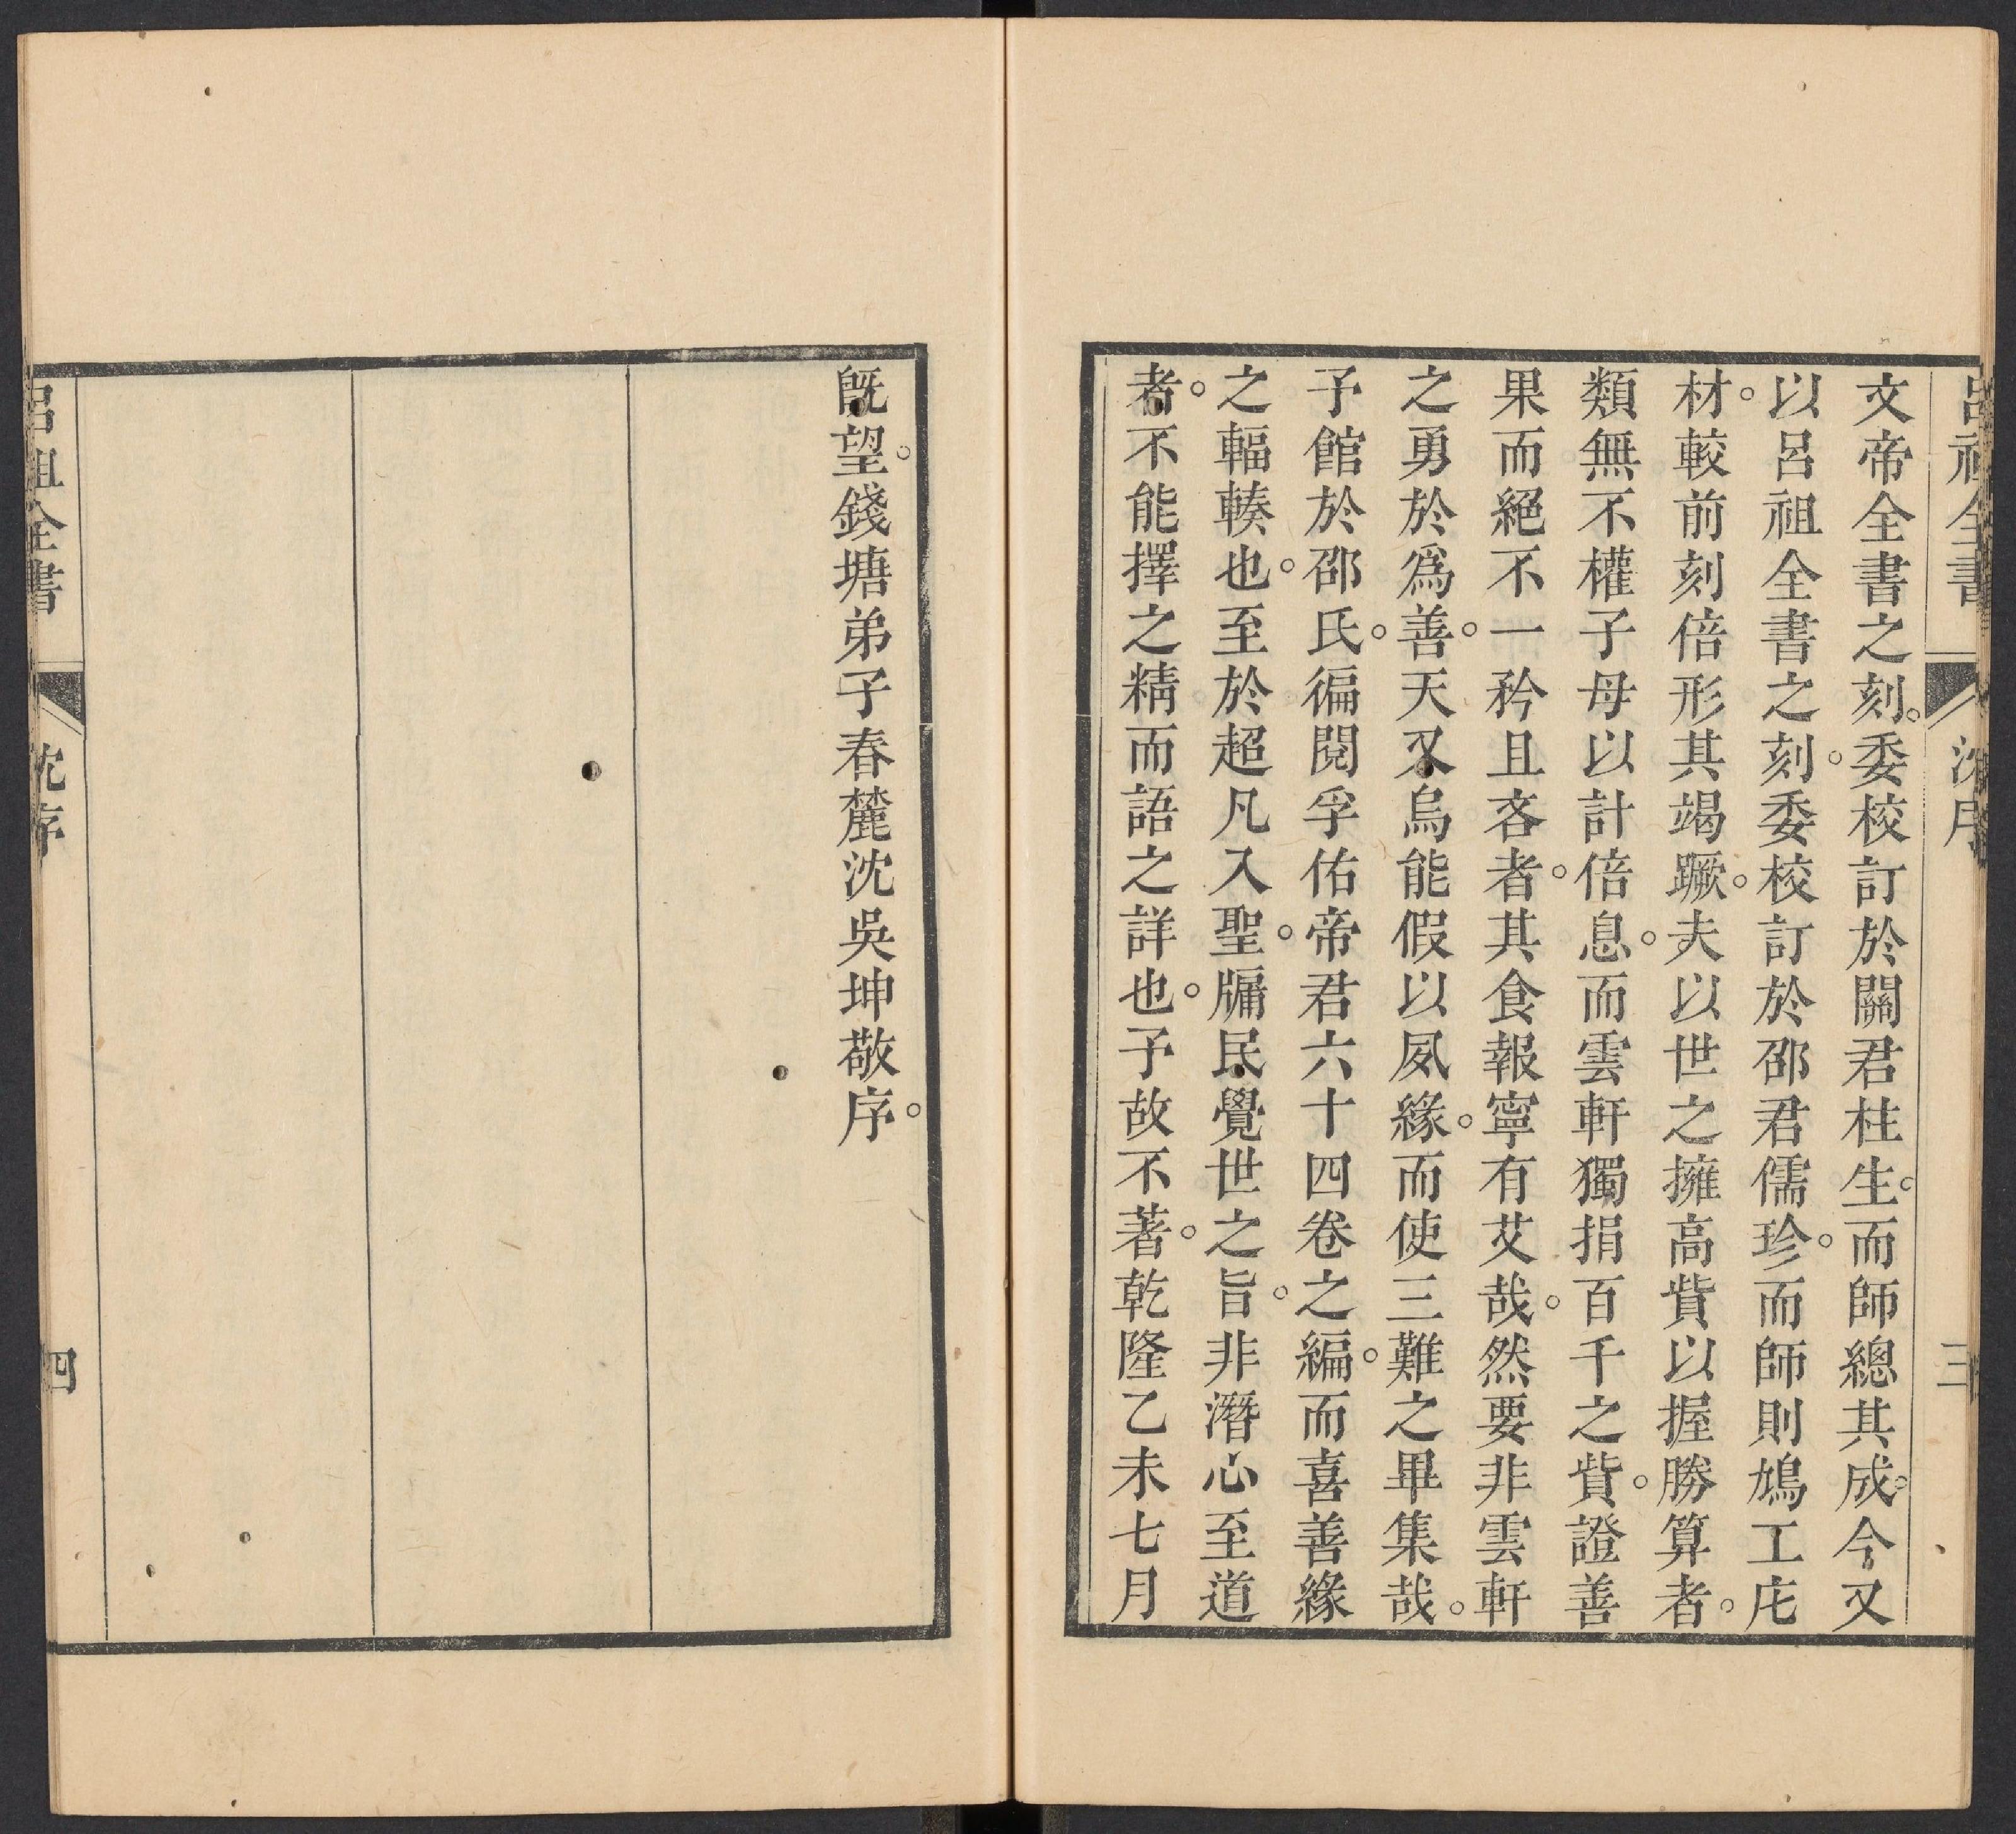 呂祖全書
沈序
三
文帝全書之刻。委校訂於關君柱生。而師總其成。今又
以呂祖全書之刻。委校訂於邵君儒珍。而師則鳩工庀
材。較前刻倍形其竭蹶。夫以世之擁高貲以握勝算者。
類無不權子母以計倍息。而雲軒獨捐百千之貲。證善
果而絕不一矜且吝者。其食報寧有艾哉。然要非雲軒
之勇於爲善。天又烏能假以夙緣。而使三難之畢集哉。
予館於邵氏。徧閱孚佑帝君六十四卷之編。而喜善緣
之輻輳也。至於超凡入聖。牖民覺世之旨。非潛心至道
者。不能擇之精而語之詳也。予故不著。乾隆乙未七月
旣望。錢塘弟子春麓沈吳坤敬序。
呂祖全書
沈序
四